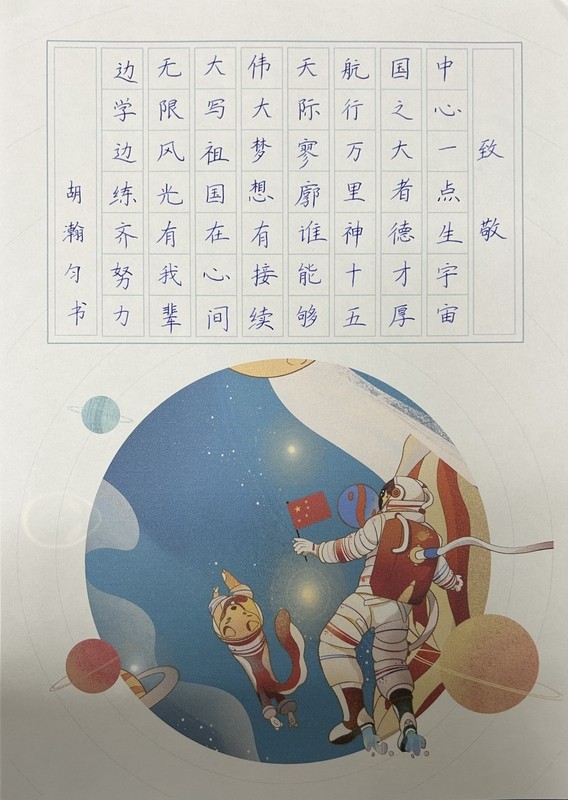 致敬
中心一点生宇宙
国之大者德才厚
航行万里神十五
天际寥廓谁能够
伟大梦想有接续
大写祖国在心间
无限风光有我辈
边学边练齐努力
胡瀚匀书